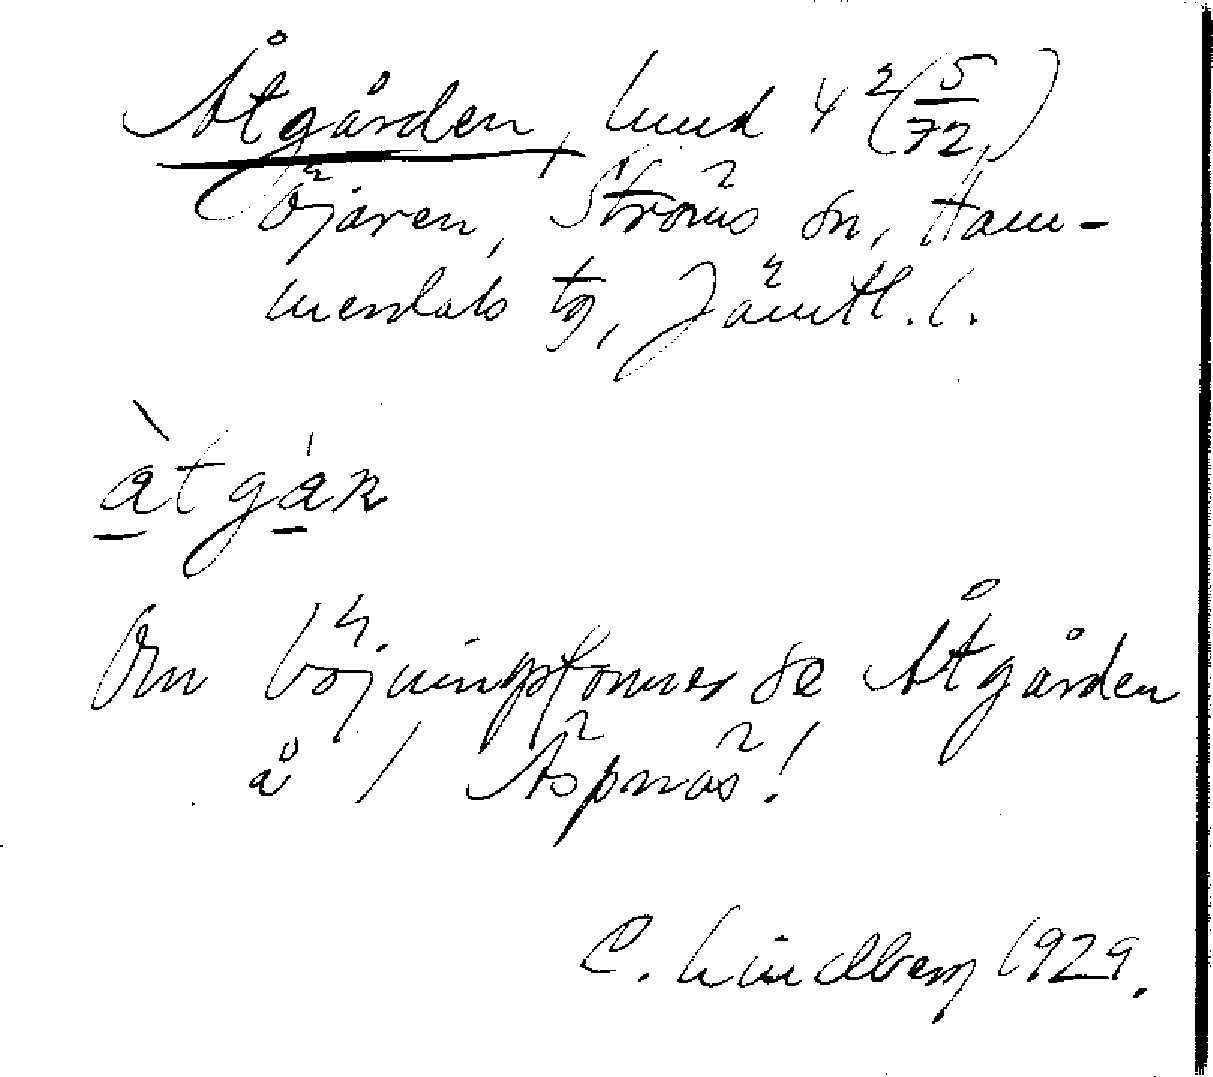 Åtgården, lmnd 4²(5/72)
Öjaren, Ströms sn, Ham-
merdals tg, Jämtl. l.
àtgáṇ
Om böjningsformer se Åtgården
å / Äspnäs!
C. Lindberg 1929.